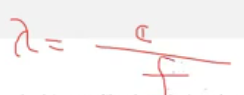 λ = c / f